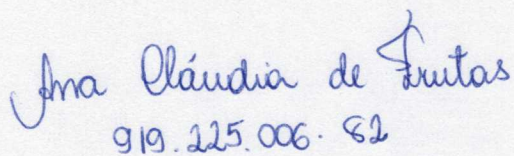 Ana Cláudia de Frutas
919.225.006.82